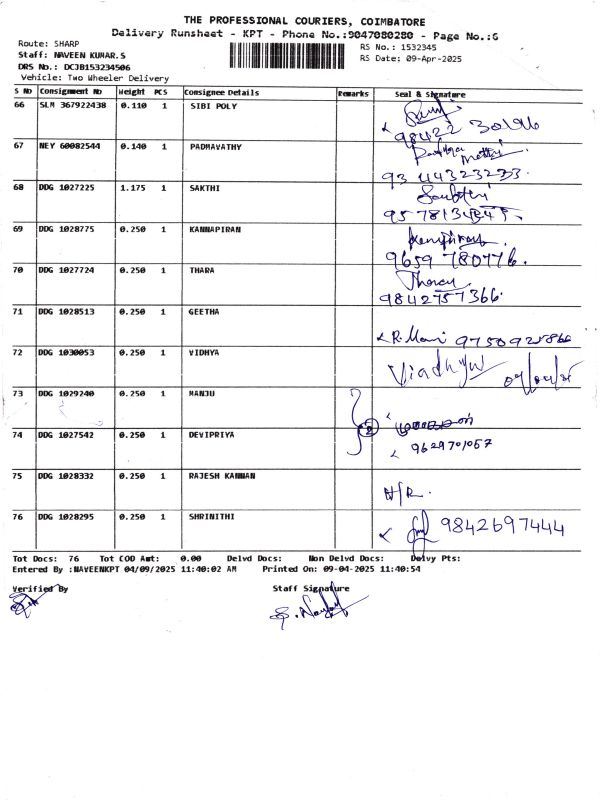 THE PROFESSIONAL COURIERS, COIMBATORE
Delivery Runsheet - KPT - Phone No.:9047080280 - Page No.:6
Route: SHARP
RS No.: 1532345
Staff: NAVEEN KUMAR.S
RS Date: 09-Apr-2025
DRS No.: DCJB153234506
Vehicle: Two Wheeler Delivery
S No Consignment No Weight PCS Consignee Details Remarks Seal & Signature
66 SLM 367922438 0.110 1 SIBI POLY
98422 30196
67 NEY 60082544 0.140 1 PADMAVATHY
93 44323233
68 DDG 1027225 1.175 1 SAKTHI
Sakthi
69 DDG 1028775 0.250 1 KANNAPIRAN
9659 780776.
70 DDG 1027724 0.250 1 THARA
9842757366.
71 DDG 1028513 0.250 1 GEETHA
R. Mani
72 DDG 1030053 0.250 1 VIDHYA
Viadhya 09/04/25
73 DDG 1029240 0.250 1 MANJU
2
74 DDG 1027542 0.250 1 DEVIPRIYA
9629701057
75 DDG 1028332 0.250 1 RAJESH KANNAN
N/R.
76 DDG 1028295 0.250 1 SHRINITHI
9842697444
Tot Docs: 76 Tot COD Amt: 0.00 Delvd Docs: Non Delvd Docs: Delvy Pts:
Entered By :NAVEENKPT 04/09/2025 11:40:02 AM Printed On: 09-04-2025 11:40:54
Verified By Staff Signature